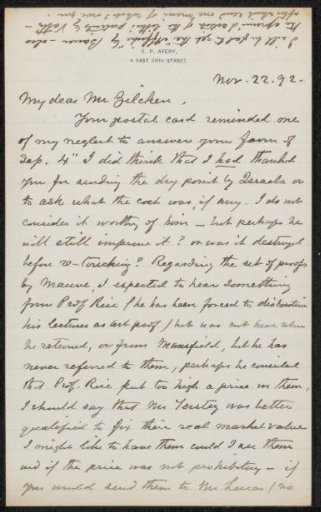 S. P. AVERY,
4 EAST 38TH STREET.
Nov. 22. 92.
My dear Mr Zilcken.
Your postal card reminded me
of my neglect to answer your favor of
Sep. 4" I did think that I had thanked
you for sending the dry point by Israels or
to ask what the cost was, if any. I do not
consider it worthy of him - but perhaps he
will still improve it? or was it destroyed
before re-touching? Regarding the set of proofs
by Mauve, I expected to hear something
from Prof Rice (he has been forced to discontinue
his lectures as art prof) but was not here when
he returned, or from Mansfield, but he has
never referred to them, perhaps he considered
that Prof. Rice put too high a price on them,
I should say that Mr Tersteg was better
qualified to fix their real market value
I might like to have them could I see them
and if the price was not prohibitory - if
you would send them to Mr Lucas (no